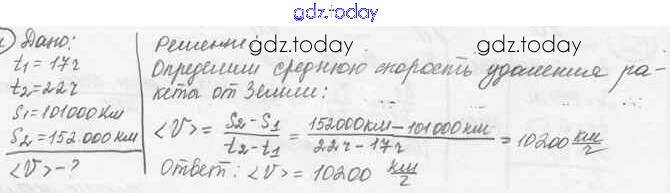 gdz.today
Дано:
t₁ = 17 ч
t₂ = 22 ч
S₁ = 101000 км
S₂ = 152.000 км
<V> - ?
Решение:
gdz.today gdz.today
Определим среднюю скорость удаления ра-
кета от Земли:
<V> = (S₂ - S₁)/(t₂ - t₁) = (152000 км - 101000 км)/(22 ч - 17 ч) = 10200 км/ч
Ответ: <V> = 10200 км/ч
gdz.today gdz.today